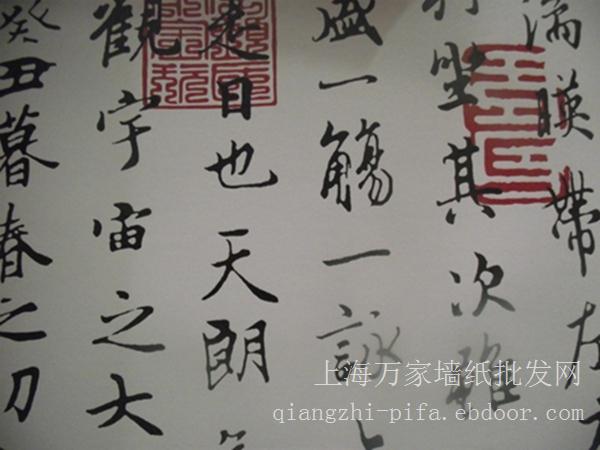 湍暎帶左
坐其次雖
盛一觴一詠
是日也天朗
觀宇宙之大
癸丑暮春之初
上海万家墙纸批发网
qiangzhi-pifa.ebdoor.com